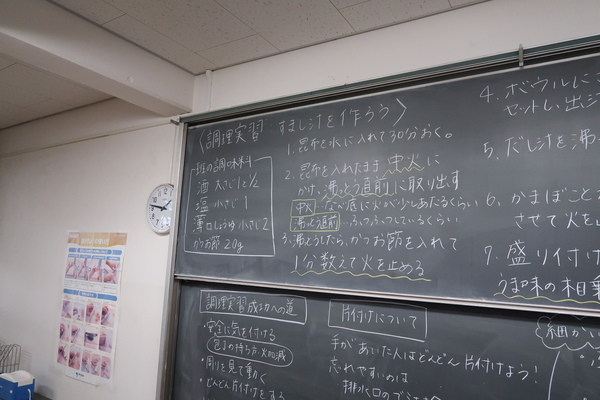 〈調理実習 すまし汁を作ろう〉
班の調味料
酒 大さじ2 1/2
塩 小さじ1
薄口しょうゆ 小さじ2
かつお節 20g
1. 昆布を水に入れて30分おく。
2. 昆布を入れたまま中火に
かけ、沸とう直前に取り出す
中火 なべ底に火が少しあたるくらい
沸とう直前 ふつふつしているくらい
3. 沸とうしたら、かつお節を入れて
1分数えて火を止める
4. ボウルに
セットし、出し
5. だし汁を沸
6. かまぼこと
させて火を
7. 盛り付け
うま味の相乗
調理実習成功への道
・安全に気を付ける
包丁の持ち方・火加減
・周りを見て動く
・どんどん片付けをする
片付けについて
手があいた人はどんどん片付けよう!
忘れやすいのは
排水口のゴミ
細かい